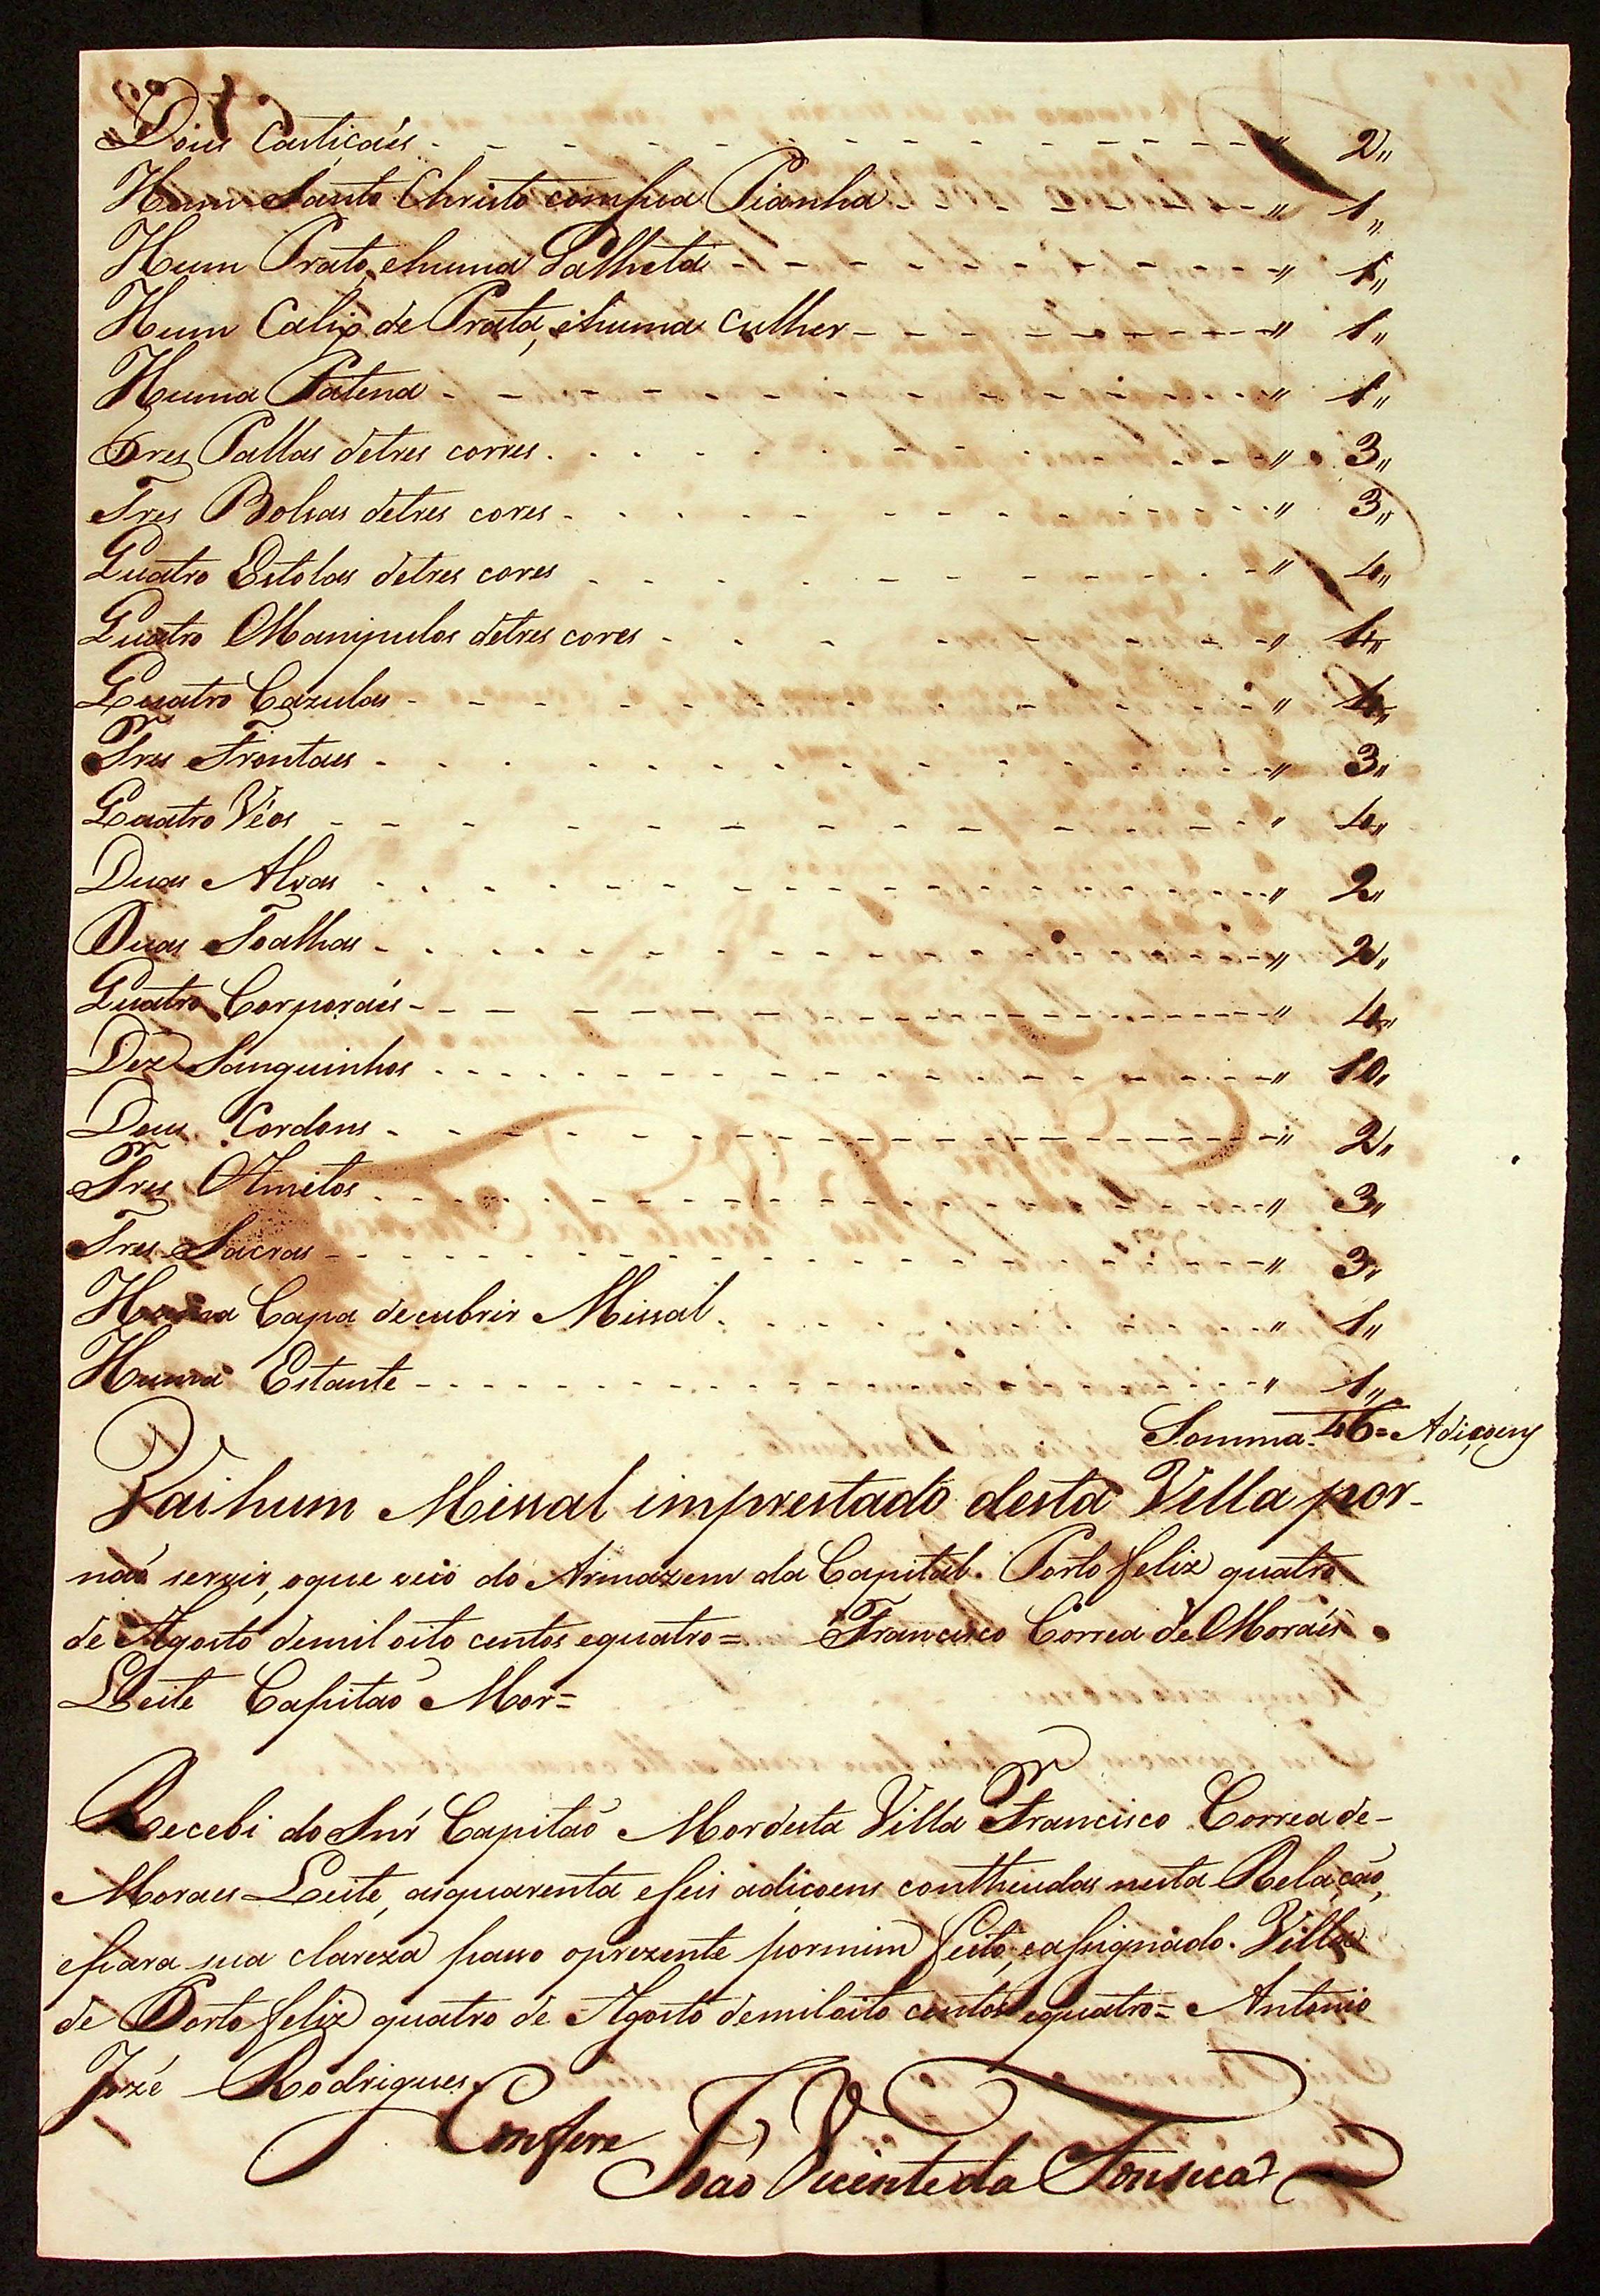 Dois Castiçaés - - - - - - - - - - " 2"
Hum Santo Christo com sua Pianha - - " 1"
Hum Prato, ehuma Palheta - - - - - - " 1"
Hum Calix de Prata, ehuma culher - - - - - - " 1"
Huma Patena - - - - - - - - - - " 1"
Tres Pallas detres corres - - - - - - - - " 3"
Tres Bolsas detres cores - - - - - - - - " 3"
Quatro Estolas detres cores - - - - - - - - " 4"
Quatro Manipulos detres cores - - - - - - " 4"
Quatro Cazulas - - - - - - - - - - " 4"
Tres Frontaes - - - - - - - - - - " 3"
Quatro Véos - - - - - - - - - - " 4"
Duas Alvas - - - - - - - - - - " 2"
Duas Toalhas - - - - - - - - - - " 2"
Quatro Corporaés - - - - - - - - - - " 4"
Dez Sanguinhos - - - - - - - - - - " 10"
Dous Cordons - - - - - - - - - - " 2"
Tres Amitos - - - - - - - - - - " 3"
Tres Sacras - - - - - - - - - - " 3"
Huma Capa decubrir Missal - - - - - - " 1"
Huma Estante - - - - - - - - - - " 1"
Somma. 46= Adiçoens
Vai hum Missal imprestado desta Villa por-
não servir, oque veio do Armazem da Capital. Porto feliz quatro
de Agosto demil oito centos equatro= Francisco Correa de Moraés
Leite Capitão Mor=
Recebi do Snr̃ Capitão Mor desta Villa Francisco Correa de-
Moraes Leite, asquarenta eseis adiçoens contheudas nesta Relação,
epara sua clareza passo oprezente pormim feito, eassignado. Villa
de Porto feliz quatro de Agosto demil oito centos equatro= Antonio
Jozé Rodrigues
Confere
João Vicente da Fonseca